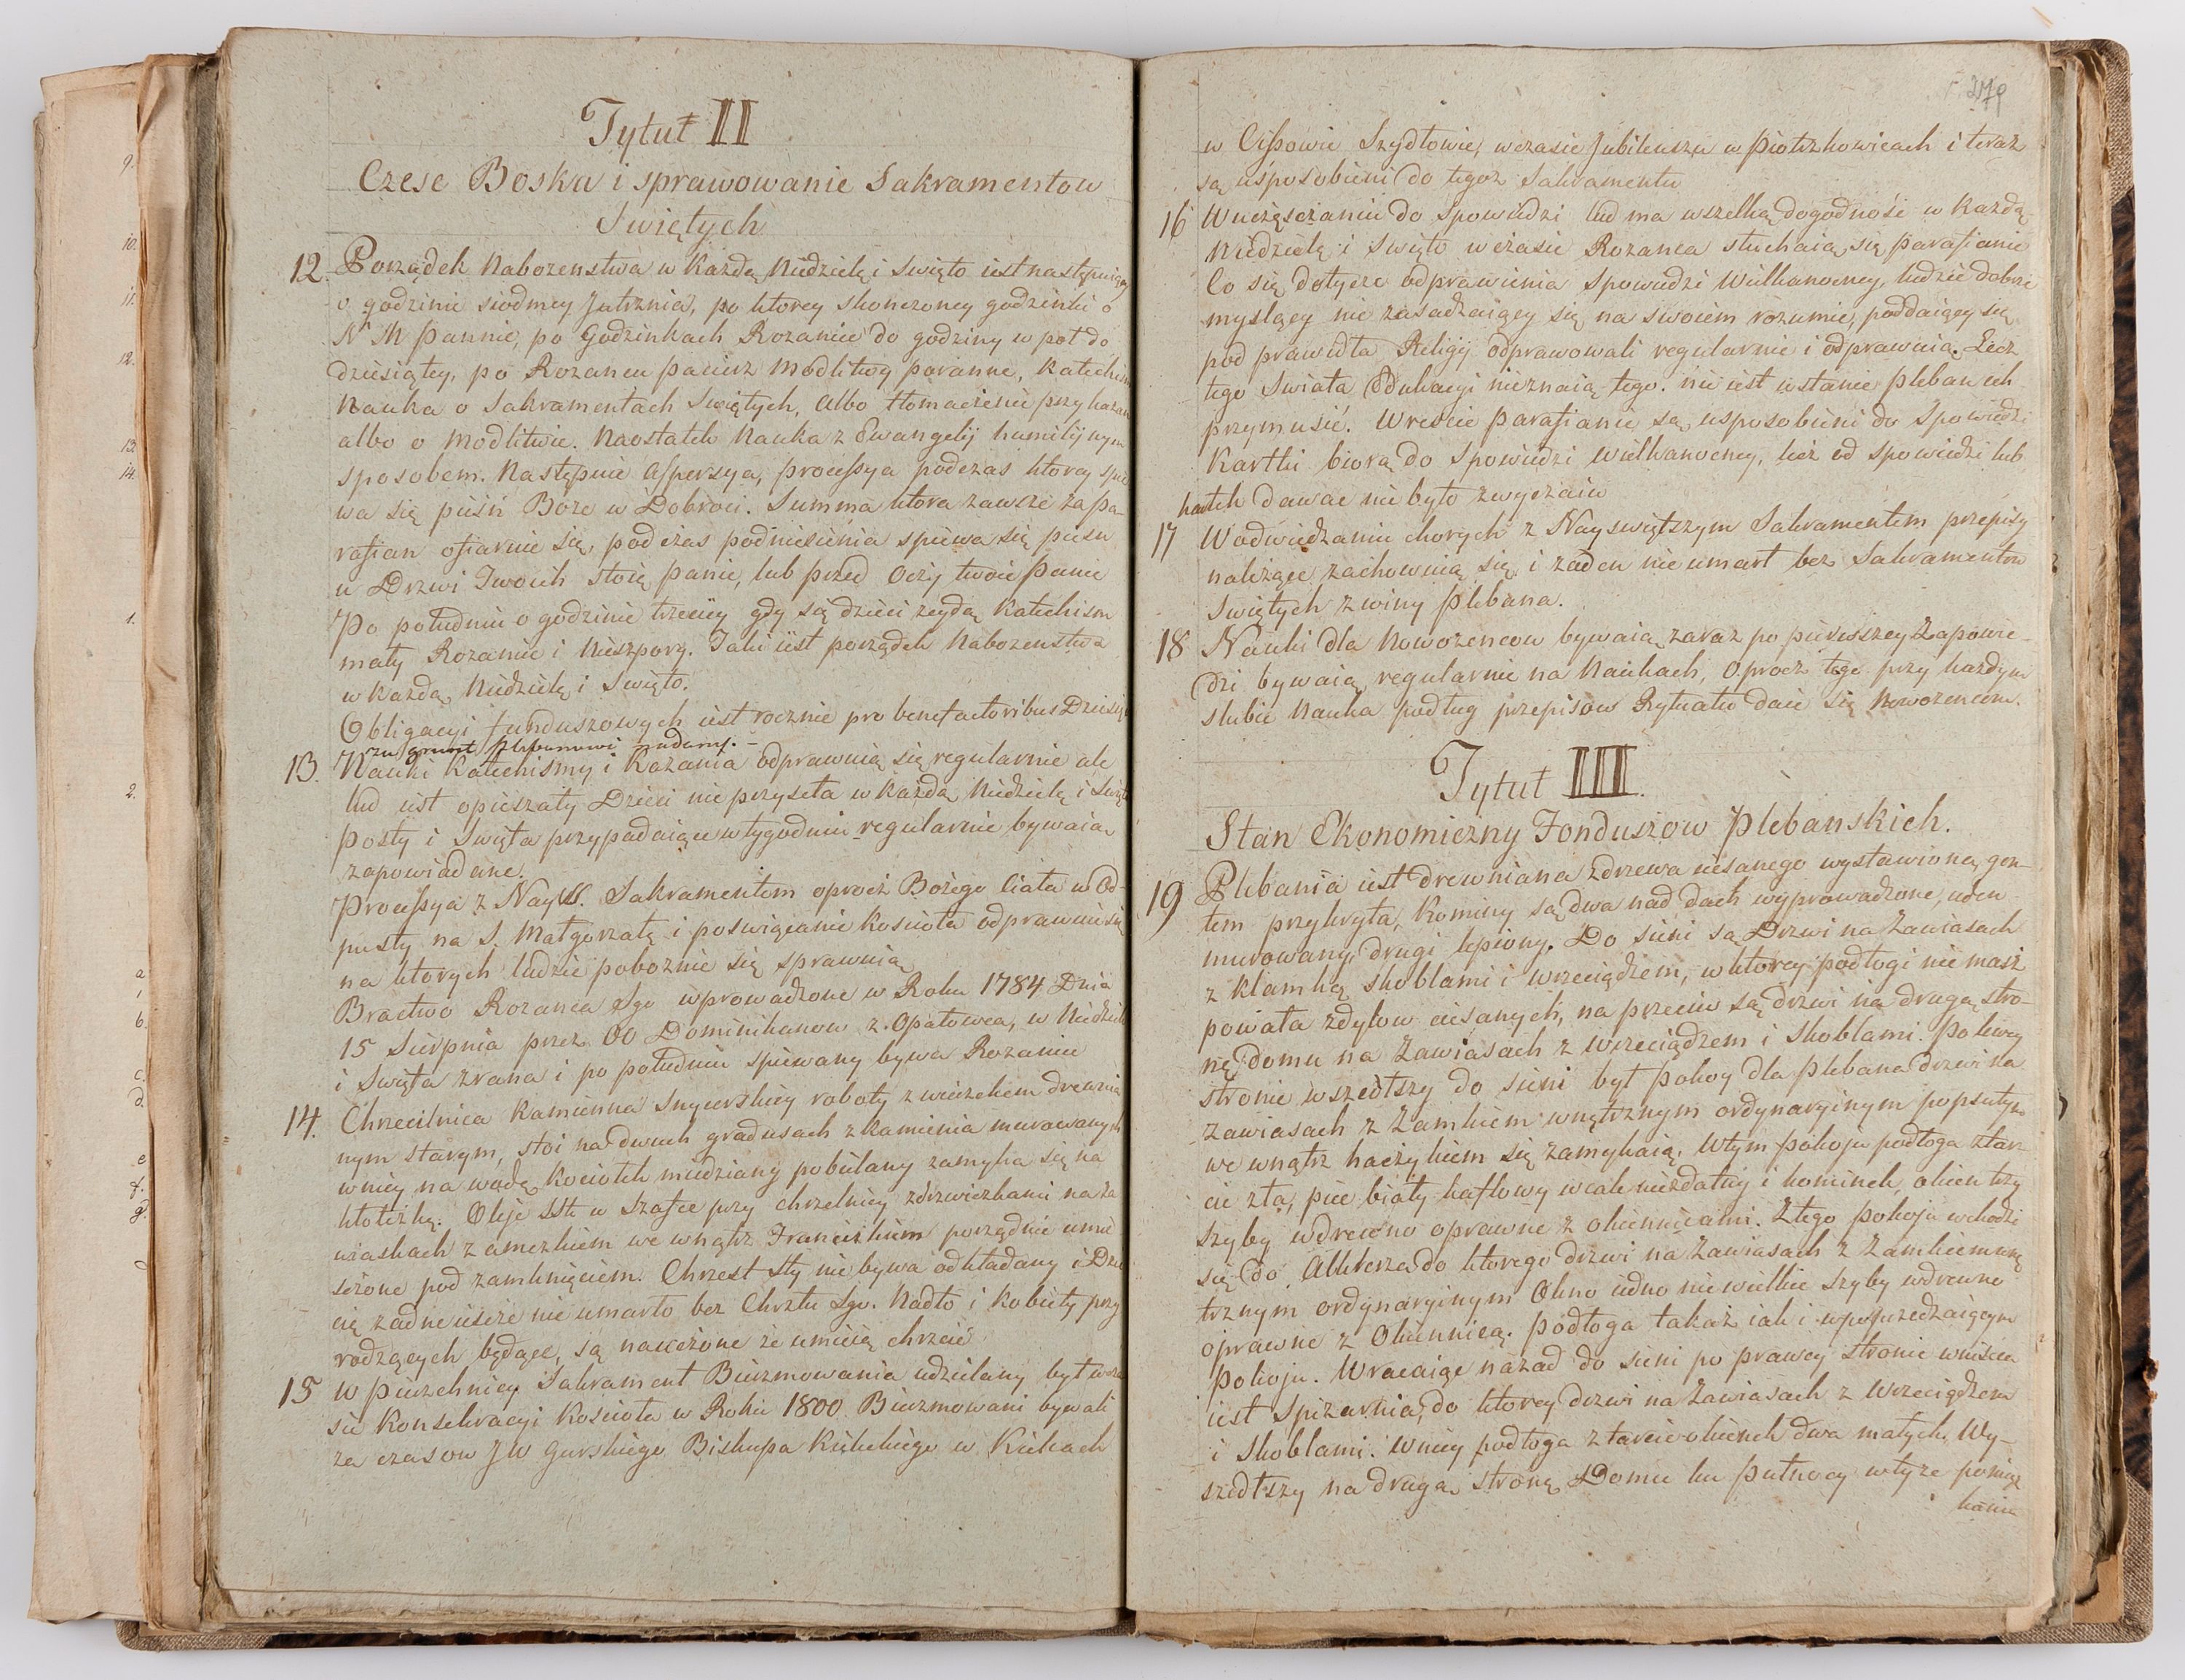 Tytuł II
Czesc Boska i sprawowanie Sakramentow
Swiętych
12. Porządek Nabozenstwa w Każdą Niedzielę i Swięto iest następuiący
o godzinie siodmey Jutrznia, po ktorey skonczoney godzinki o
N M Pannie, po Godzinkach Rozaniec do godziny w pół do
dziesiątey, po Rozancu pacierz Modlitwy poranne, Katechizm
Nauka o Sakramentach Swiętych, albo tłomaczenie przykazan
albo o Modlitwie. Naostatek Nauka z Ewangelij humilijnym
sposobem. Następuie Aspersya, processya podczas ktorey spie
wa się pieśń Boże w Dobroci. Summa ktora zawsze za Pa-
rafian ofiaruie się, podczas podniesienia spiewa się piesn
u Drzwi Twoich stoię Panie, lub przed Oczy twoie Panie
Po południu o godzinie trzeciey gdy się dzieci zeydą Katechism
mały Rozaniec i Nieszpory. Taki iest porządek Nabozenstwa
w każdą Niedzielę i Swięto.
Obligacyi funduszowych iest rocznie pro benefactoribus Dziesięc
za grunt Plebanowi nadany. -
13. Nauki Katechismy i Kazania odprawuią się regularnie ale
lud iest opieszały Dzieci nie przyseła w każdą Niedzielę i Swięto
Posty i Swięta przypadaiące w tygodniu regularnie bywaią
zapowiadane.
Processya z Nayśś. Sakramentem oprocz Bożego Ciała w Od-
pusty na S. Małgorzatę i poswięcanie Koscioła odprawuie się
na ktorych ludzie pobożnie się sprawuią
Bractwo Rozanca Sgo wprowadzone w Roku 1784 Dnia
15 Sierpnia przez OO Dominikanow z Opatowca, w Niedziele
i Swięta zrana i po południu spiewany bywa Rozaniec
14. Chrzcilnica Kamienna Snycerskiey roboty z wieżchem drewnia
nym starym, stoi na dwuch gradusach z kamienia murowanych
w niey na wodę Kociołek miedziany pobielany zamyka się na
kłotkę. Oleje SSte w Szafce przy chrzelnicy zdrzwiczkami na Za
wiaskach z ameczkiem we wnątrz Franciskiem porządnie umie
sczone pod zamknięciem. Chrzest Sty nie bywa odkładany i Dzie
cię żadne iescze nie umarło bez Chrztu Sgo. Nadto i Kobiety przy
rodzących będące, są nauczone że umieią chrzcić
15 w Pierzchnicy Sakrament Bierzmowania udzielany był w cza
sie Konsekracyi Kościoła w Roku 1800. Bierzmowani bywali
za czasow JW Gurskiego Biskupa Kieleckiego w Kielcach
279
w Cissowie Szydłowie, wczasie Jubileuszu w Piotrkowicach i teraz
są usposobieni do tegoz Sakramentu
16 Wuczęsczaniu do Spowiedzi lud ma wszelką dogodność w Każdą
Niedzielę i Swięto wczasie Rozanca słuchaią się parafianie
Co się dotycze odprawienia Spowiedzi Wielkanocney, ludzie dobrze
myslący nie zasadzaiący się na swoiem rozumie, poddaiący się
pod prawidła Religij odprawowali regularnie i odprawuią. Lecz
tego Swiata Edukacyi nieznaią tego. nie iest wstanie Pleban ich
przymusić. Wrescie Parafianie są usposobieni do Spowiedzi
Kartki biorą do Spowiedzi wielkanocney, lecz od spowiedzi lub
kartek dawac nie było zwyczaiu
17 Wodwiedzaniu chorych z Nayswiętszym Sakramentem przepisy
należące zachowuią się i żaden nie umarł bez Sakramentow
Swiętych z winy Plebana.
18 Nauki dla Nowozencow bywaią zaraz po pierwszey Zapowie-
dzi bywaią regularnie na Naukach, Oprocz tego przy każdym
slubie Nauka podług przepisow Rytuału daie się Nowozencom.
Tytuł III.
Stan Ekonomiczny Fonduszow Plebanskich.
19 Plebania iest drewniana zdrzewa ciesanego wystawiona, gon-
tem przykryta, Kominy są dwa nad dach wyprowadzone, ieden
murowany, drugi lepiony. Do sieni są Drzwi na Zawiasach
z klamką skoblami i wrzeciądzem, w ktorey podłogi nie masz
powała zdylow ciesanych, na przeciw są drzwi na drugą stro-
nę domu na Zawiasach z wrzeciądzem i Skoblami. Po lewey
stronie wszedłszy do sieni był Pokoy dla Plebana drzwi na
Zawiasach z Zamkiem wnątrznym ordynaryinym popsutym
we wnątrz haczykiem się zamykaią. Wtym Pokoju podłoga ztar-
cic zła, piec biały kaflowy wcale niezdatny i kominek, okien trzy
szyby wdrewno oprawne z okiennicami. Ztego Pokoju wchodzi
się do Alkierza do ktorego drzwi na Zawiasach z Zamkiem wnę
trznym ordynaryinym Okno iedno niewielkie szyby wdrewno
oprawne z Okiennicą. Podłoga takaż iak i w poprzedzaiącym
Pokoju. Wracaiąc nazad do sieni po prawey stronie wniscia
iest Spizarnia, do ktorey drzwi na Zawiasach z Wrzeciądzem
i Skoblami. Wniey podłoga z tarcic okienek dwa małych. Wy-
szedłszy na drugą stronę Domu ku Pułnocy wtyże pomiesz
kaniu